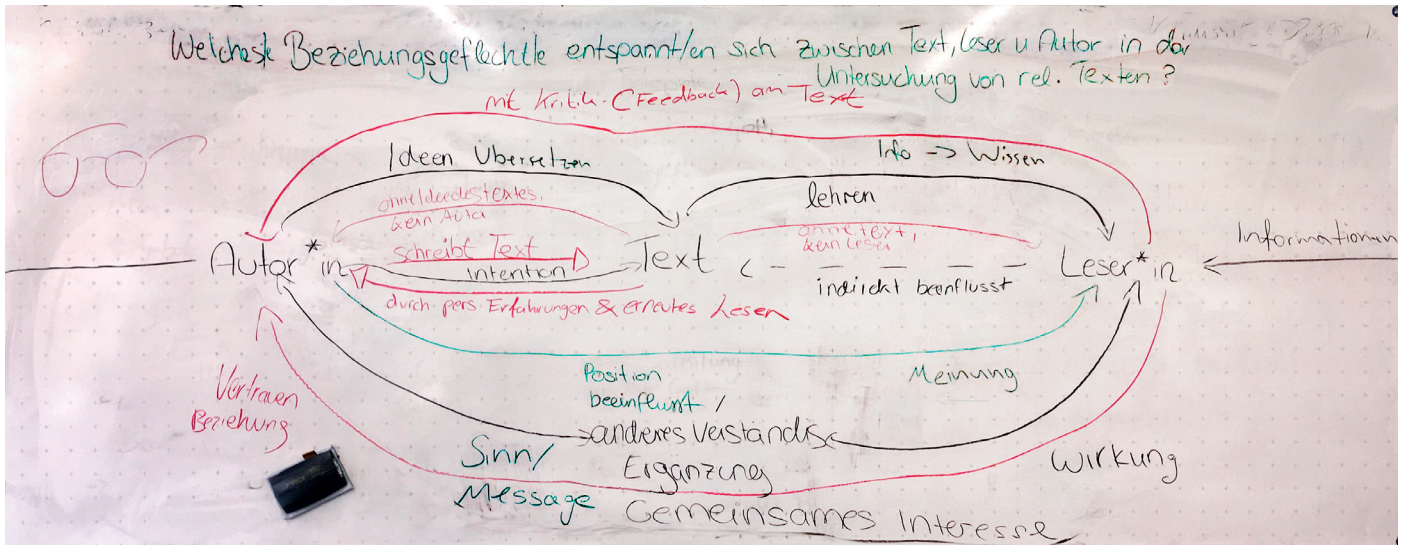 Welche/s Beziehungsgeflecht/e entspannt/en sich zwischen Text, Leser u Autor in der
Untersuchung von rel. Texten?
mit Kritik (Feedback) am Text
Ideen Übersetzen
Info -> Wissen
lehren
ohne Idee des Textes,
kein Auto
ohne text,
kein Leser
schreibt Text
Informationen
Autor*in
Text
Leser*in
Intention
indirekt beenflusst
durch pers. Erfahrungen & erneutes Lesen
Position
beeinflusst /
Meinung
Vertrauen
Beziehung
anderes Verständis
Ergänzung
Sinn/
Message
Wirkung
Gemeinsames Interesse